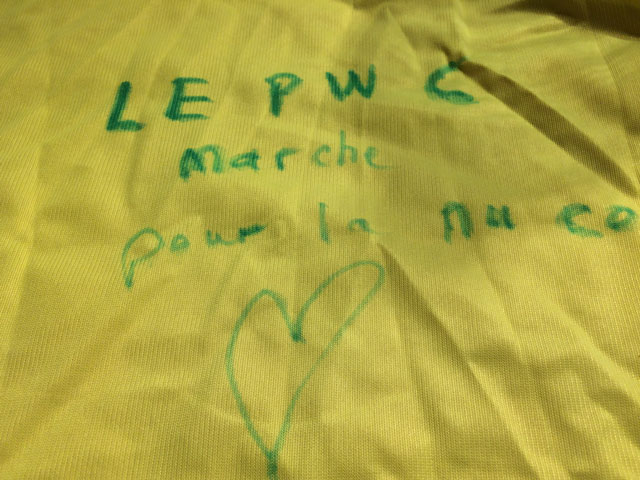 LE PWC
marche
pour la muco